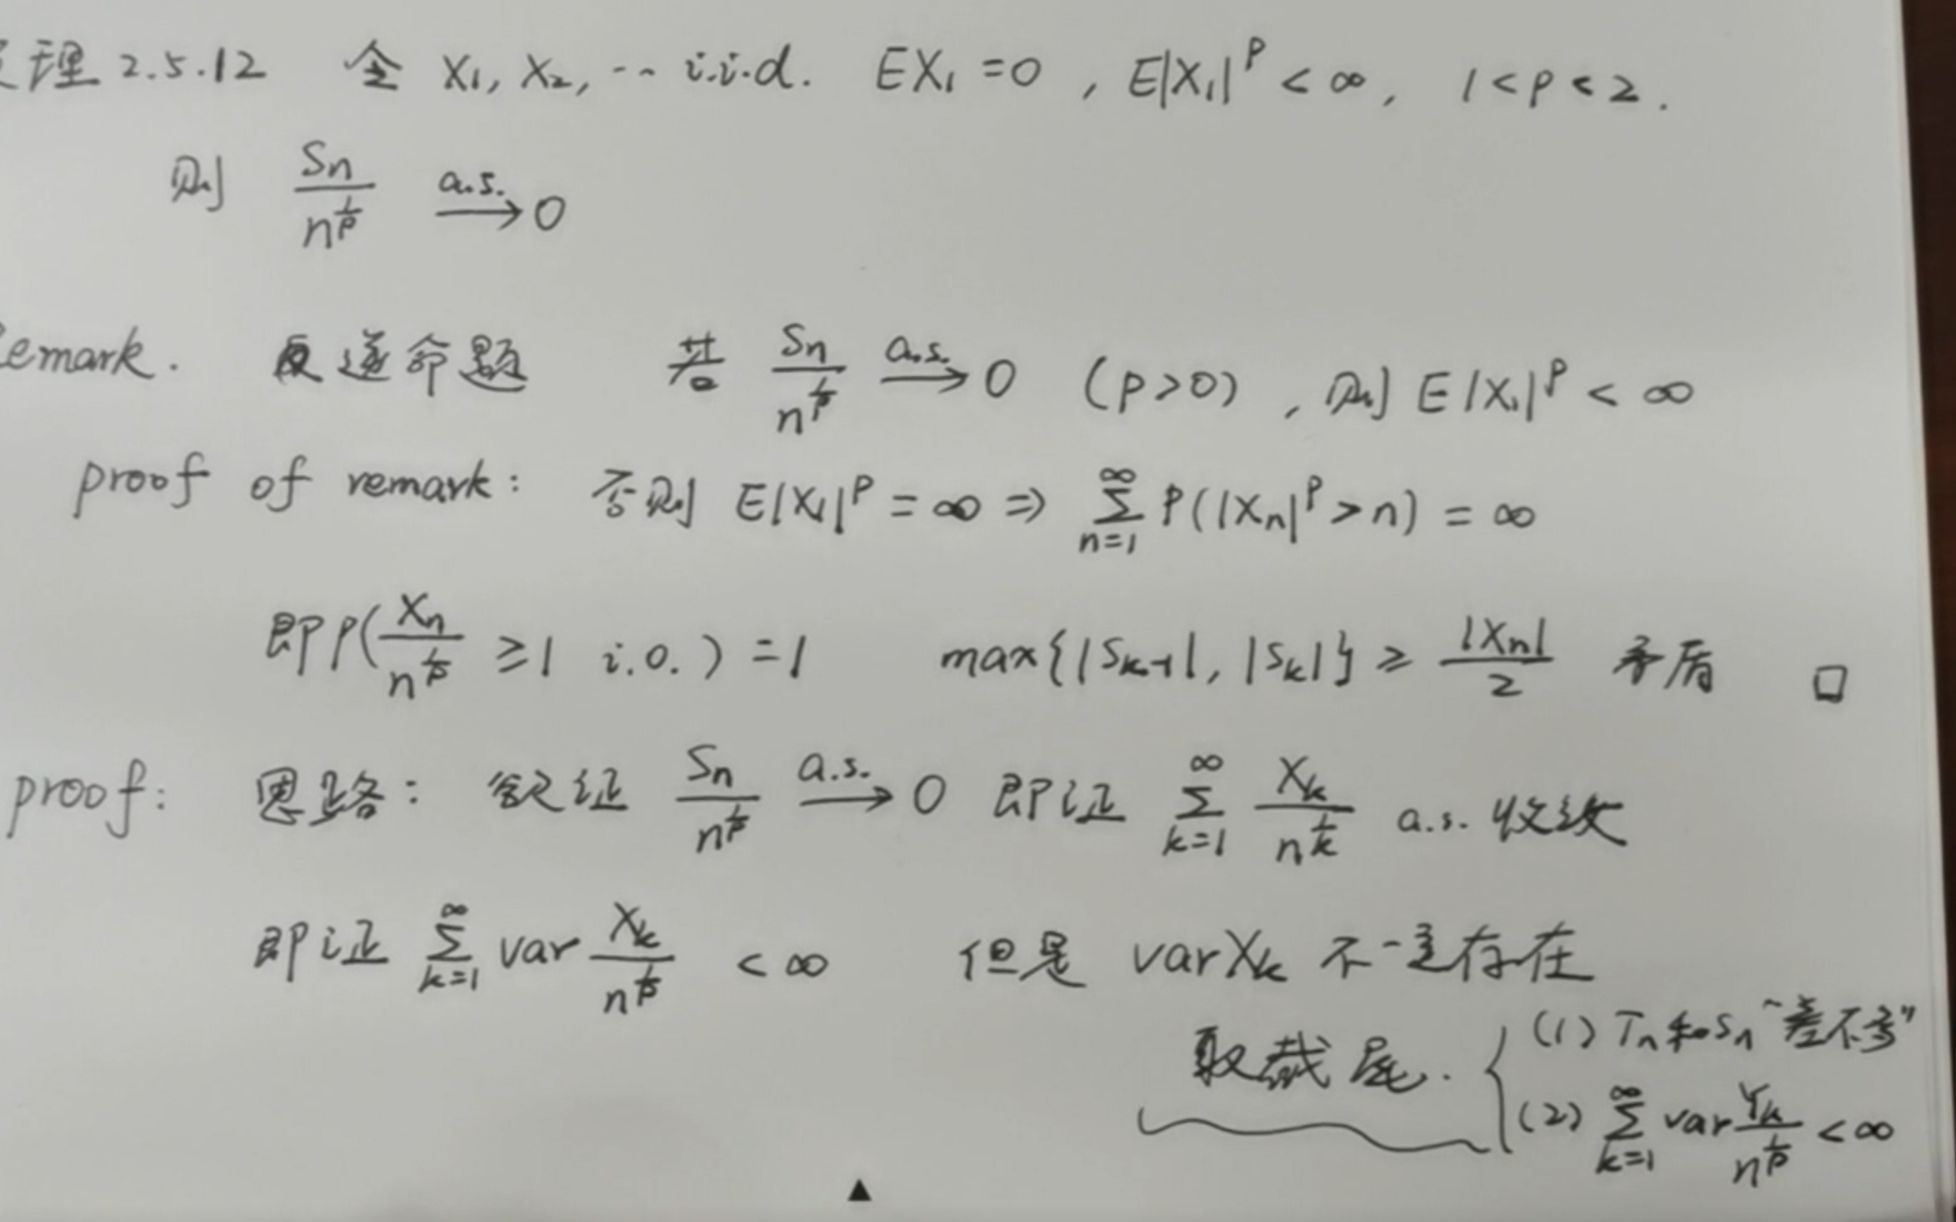 定理 2.5.12 令 X₁, X₂, ... i.i.d. EX₁ = 0 , E|X₁|^p < ∞, 1 < p < 2 .
则 Sn / n^{1/p} →^{a.s.} 0
Remark. 逆命题 若 Sn / n^{1/p} →^{a.s.} 0 (p>0) , 则 E|X₁|^p < ∞
proof of remark: 否则 E|X₁|^p = ∞ ⇒ ∑_{n=1}^{∞} P(|Xn|^p > n) = ∞
即 P( Xn / n^{1/p} ≥ 1 i.o. ) = 1 max{|S_{k-1}|, |S_k|} ≥ |Xn| / 2 矛盾 □
proof: 思路: 欲证 Sn / n^{1/p} →^{a.s.} 0 即证 ∑_{k=1}^{∞} X_k / n^{1/k} a.s. 收敛
即证 ∑_{k=1}^{∞} var X_k / n^{1/p} < ∞ 但是 varX_k 不一定存在
取截尾. { (1) Tn和Sn "差不多"
(2) ∑_{k=1}^{∞} var Y_k / n^{1/p} < ∞
▲